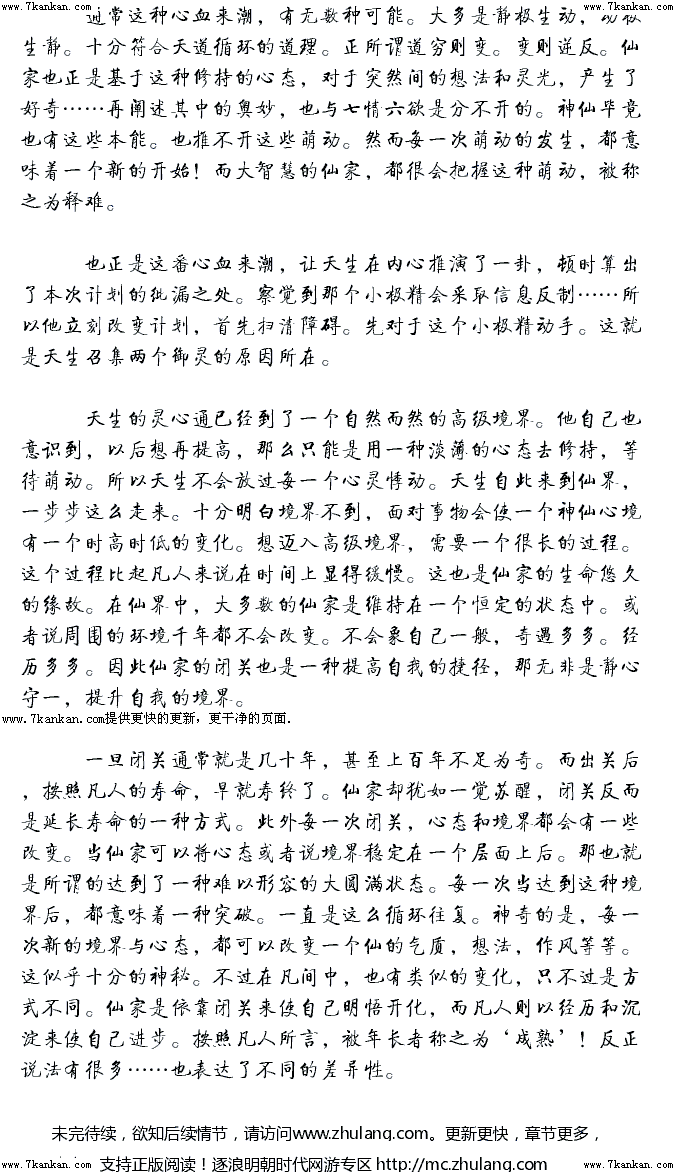 www.7kankan.com www.7kankan.com
通常这种心血来潮，有无数种可能。大多是静极生动，动极
生静。十分符合天道循环的道理。正所谓道穷则变。变则逆反。仙
家也正是基于这种修持的心态，对于突然间的想法和灵光，产生了
好奇……再阐述其中的奥妙，也与七情六欲是分不开的。神仙毕竟
也有这些本能。也推不开这些萌动。然而每一次萌动的发生，都意
味着一个新的开始！而大智慧的仙家，都很会把握这种萌动，被称
之为释难。
也正是这番心血来潮，让天生在内心推演了一卦，顿时算出
了本次计划的纰漏之处。察觉到那个小极精会采取信息反制……所
以他立刻改变计划，首先扫清障碍。先对于这个小极精动手。这就
是天生召集两个御灵的原因所在。
天生的灵心通已经到了一个自然而然的高级境界。他自己也
意识到，以后想再提高，那么只能是用一种淡薄的心态去修持，等
待萌动。所以天生不会放过每一个心灵悸动。天生自此来到仙界，
一步步这么走来。十分明白境界不到，面对事物会使一个神仙心境
有一个时高时低的变化。想迈入高级境界，需要一个很长的过程。
这个过程比起凡人来说在时间上显得缓慢。这也是仙家的生命悠久
的缘故。在仙界中，大多数的仙家是维持在一个恒定的状态中。或
者说周围的环境千年都不会改变。不会象自己一般，奇遇多多。经
历多多。因此仙家的闭关也是一种提高自我的捷径，那无非是静心
守一，提升自我的境界。
www.7kankan.com提供更快的更新，更干净的页面.
一旦闭关通常就是几十年，甚至上百年不足为奇。而出关后
，按照凡人的寿命，早就寿终了。仙家却犹如一觉苏醒，闭关反而
是延长寿命的一种方式。此外每一次闭关，心态和境界都会有一些
改变。当仙家可以将心态或者说境界稳定在一个层面上后。那也就
是所谓的达到了一种难以形容的大圆满状态。每一次当达到这种境
界后，都意味着一种突破。一直是这么循环往复。神奇的是，每一
次新的境界与心态，都可以改变一个仙的气质，想法，作风等等。
这似乎十分的神秘。不过在凡间中，也有类似的变化，只不过是方
式不同。仙家是依靠闭关来使自己明悟开化，而凡人则以经历和沉
淀来使自己进步。按照凡人所言，被年长者称之为‘成熟’！反正
说法有很多……也表达了不同的差异性。
未完待续，欲知后续情节，请访问www.zhulang.com。更新更快，章节更多，
www.7kankan.com 支持正版阅读！逐浪明朝时代网游专区 http://mc.zhulang.com www.7kankan.com